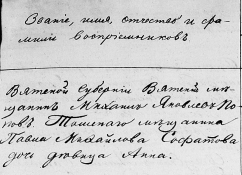 Званіе, имя, отчество и фа-
миліи воспріемниковъ
Вятской Губерніи Вятскій мѣ-
щанинъ Михаилъ Яковлевъ По-
повъ. Томскаго мѣщанина
Павла Михайлова Софатова
дочь дѣвица Анна.